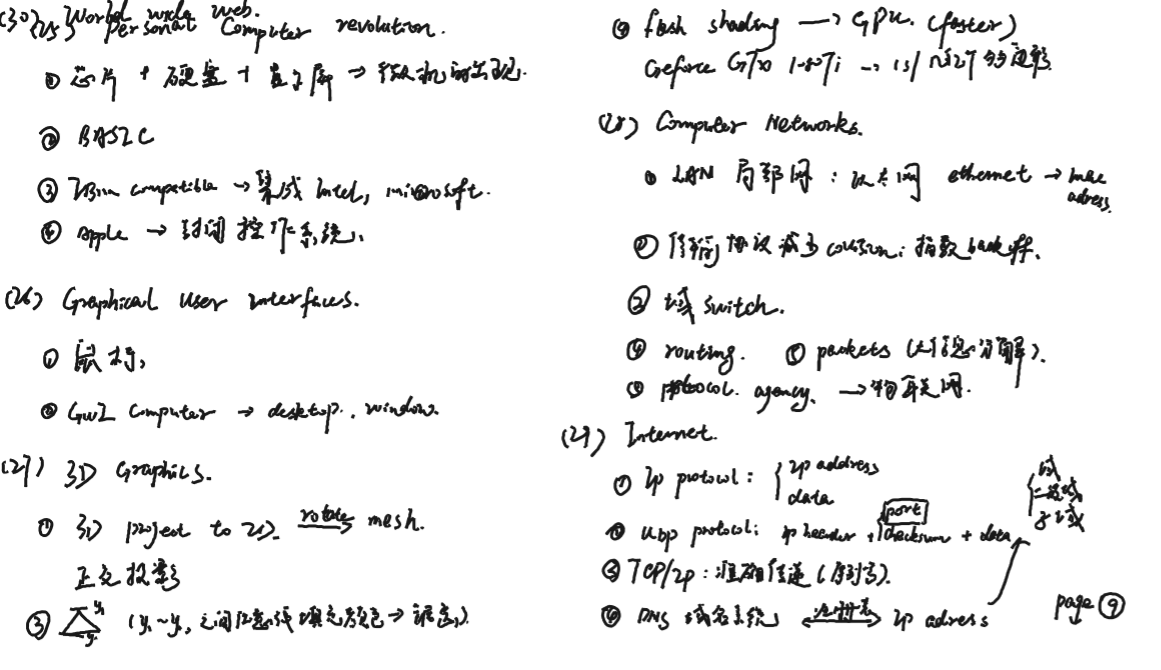 (30) World wide web.
(25) Personal Computer revolution.
① 芯片 + 硬盘 + 显示屏 → 微机的出现.
② BASIC
③ IBM compatible → 集成 Intel, microsoft.
④ apple → 封闭操作系统.
(26) Graphical user interfaces.
① 鼠标,
② GUI computer → desktop. window.
(27) 3D Graphics.
① 3D project to 2D. rotate → mesh.
正交投影
③ y₁ y₂ (y₁ ~ y₂ 之间任意线填充颜色 →
④ flash shading → GPU. (faster)
Geforce GTX 1080Ti → 1s/ 多边形
(28) Computer Networks.
① LAN 局部网 : 以太网 ethernet → mac adress.
② 传输协议减少 collision: 指数 backoff.
② 域 switch.
④ routing. ⑤ packets (大信息分解).
⑥ protocol. agency. → 物联网.
(29) Internet.
① Ip protocol : { Ip address
data
② UDP protocol: ip header + { port
checksum + data
③ TCP/Ip : 准确传递 (序列号).
④ DNS 域名系统 ⟷ 注册表 Ip adress
{ 域
二级域
子域
page ⑨